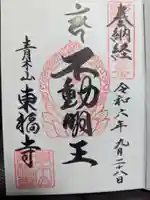 奉納経
令和六年九月二十八日
不動明王
青林山
東福寺